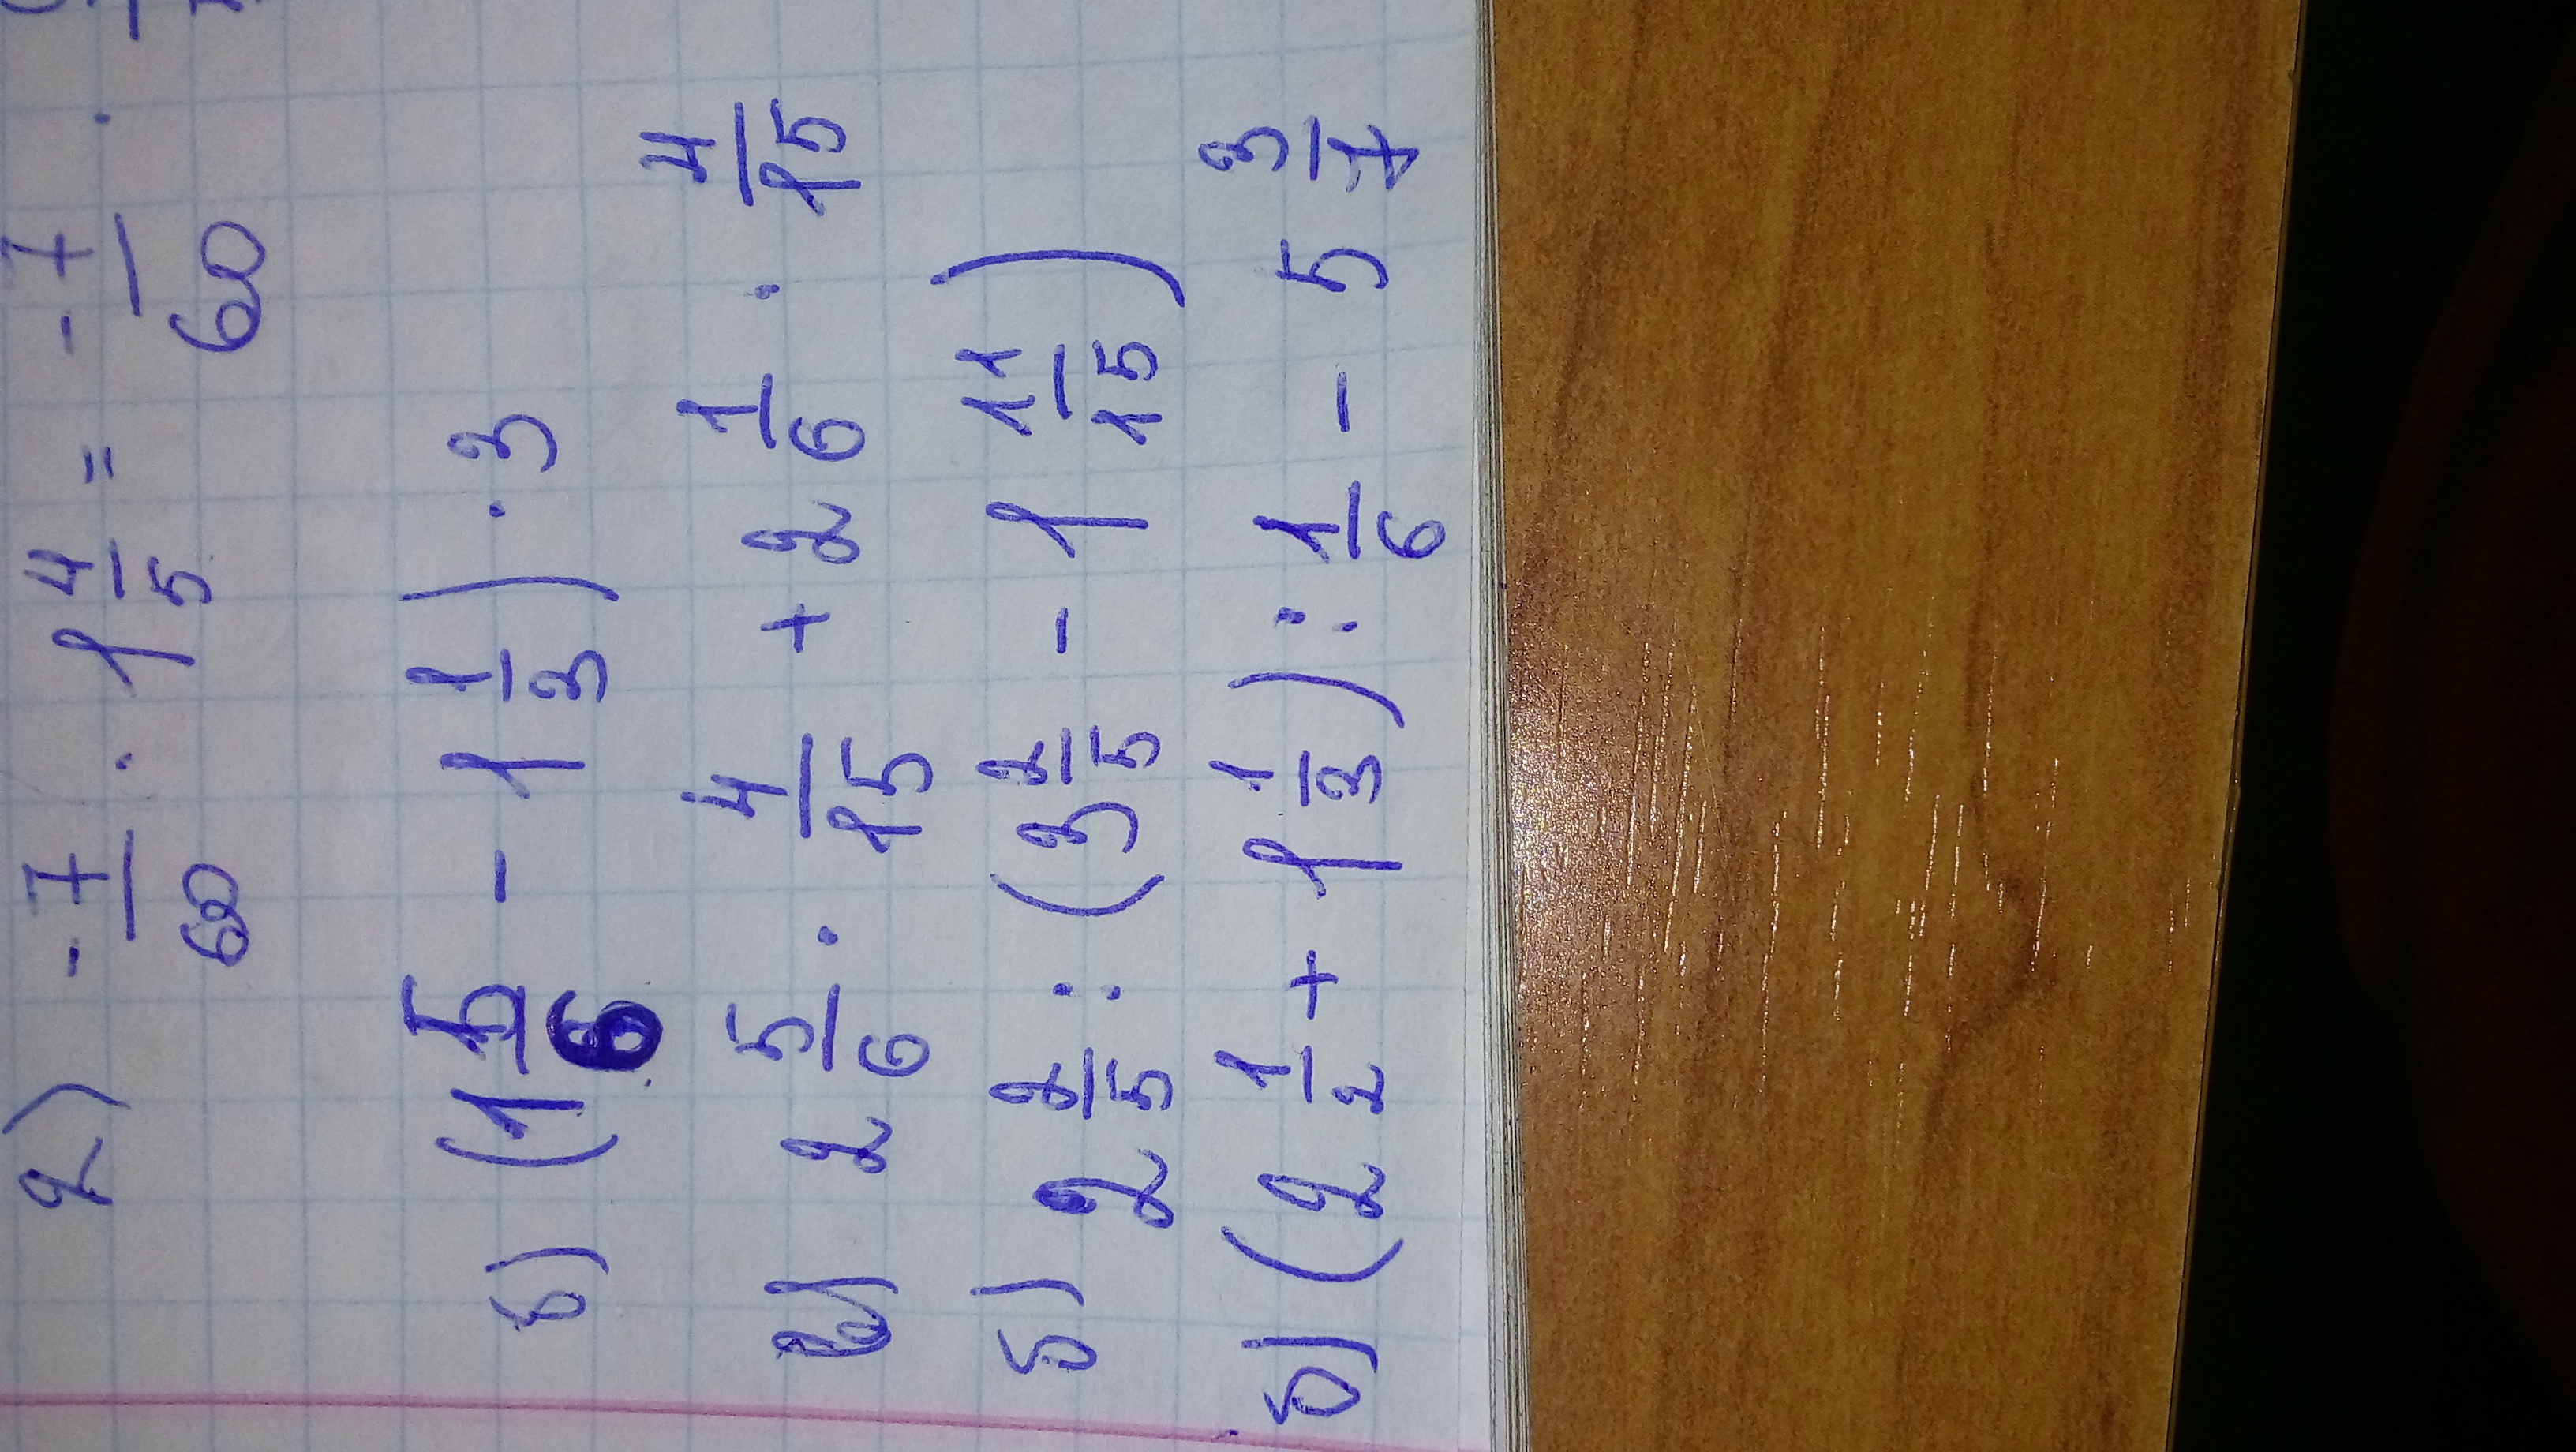 2) -7/60 · 1 4/5 = -7/60 ·
б) (1 5/6 - 1 1/3) · 3
2 5/6 · 4/15 + 2 1/6 · 4/15
б) 2 2/5 : (3 2/5 - 1 11/15)
б) (2 1/2 + 1 1/3) : 1/6 - 5 3/7